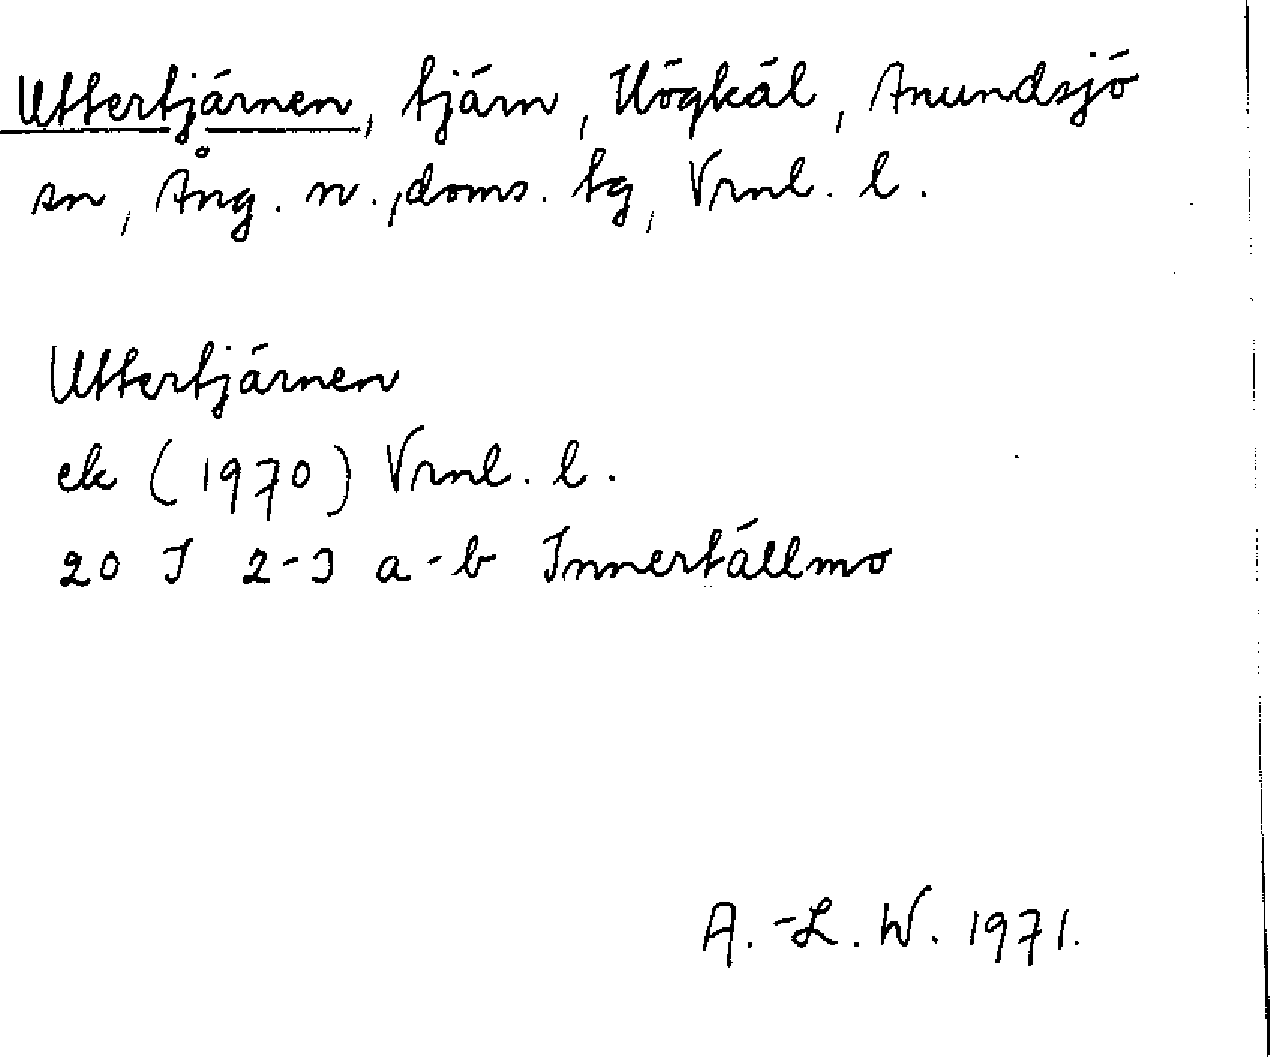 Uttertjärnen, tjärn, Högkäl, Anundsjö
sn, Ång. n., doms. tg, Vrml. l.
Uttertjärnen
ek (1970) Vrml. l.
20 J 2-3 a-b Innertällmo
A.-L. W. 1971.